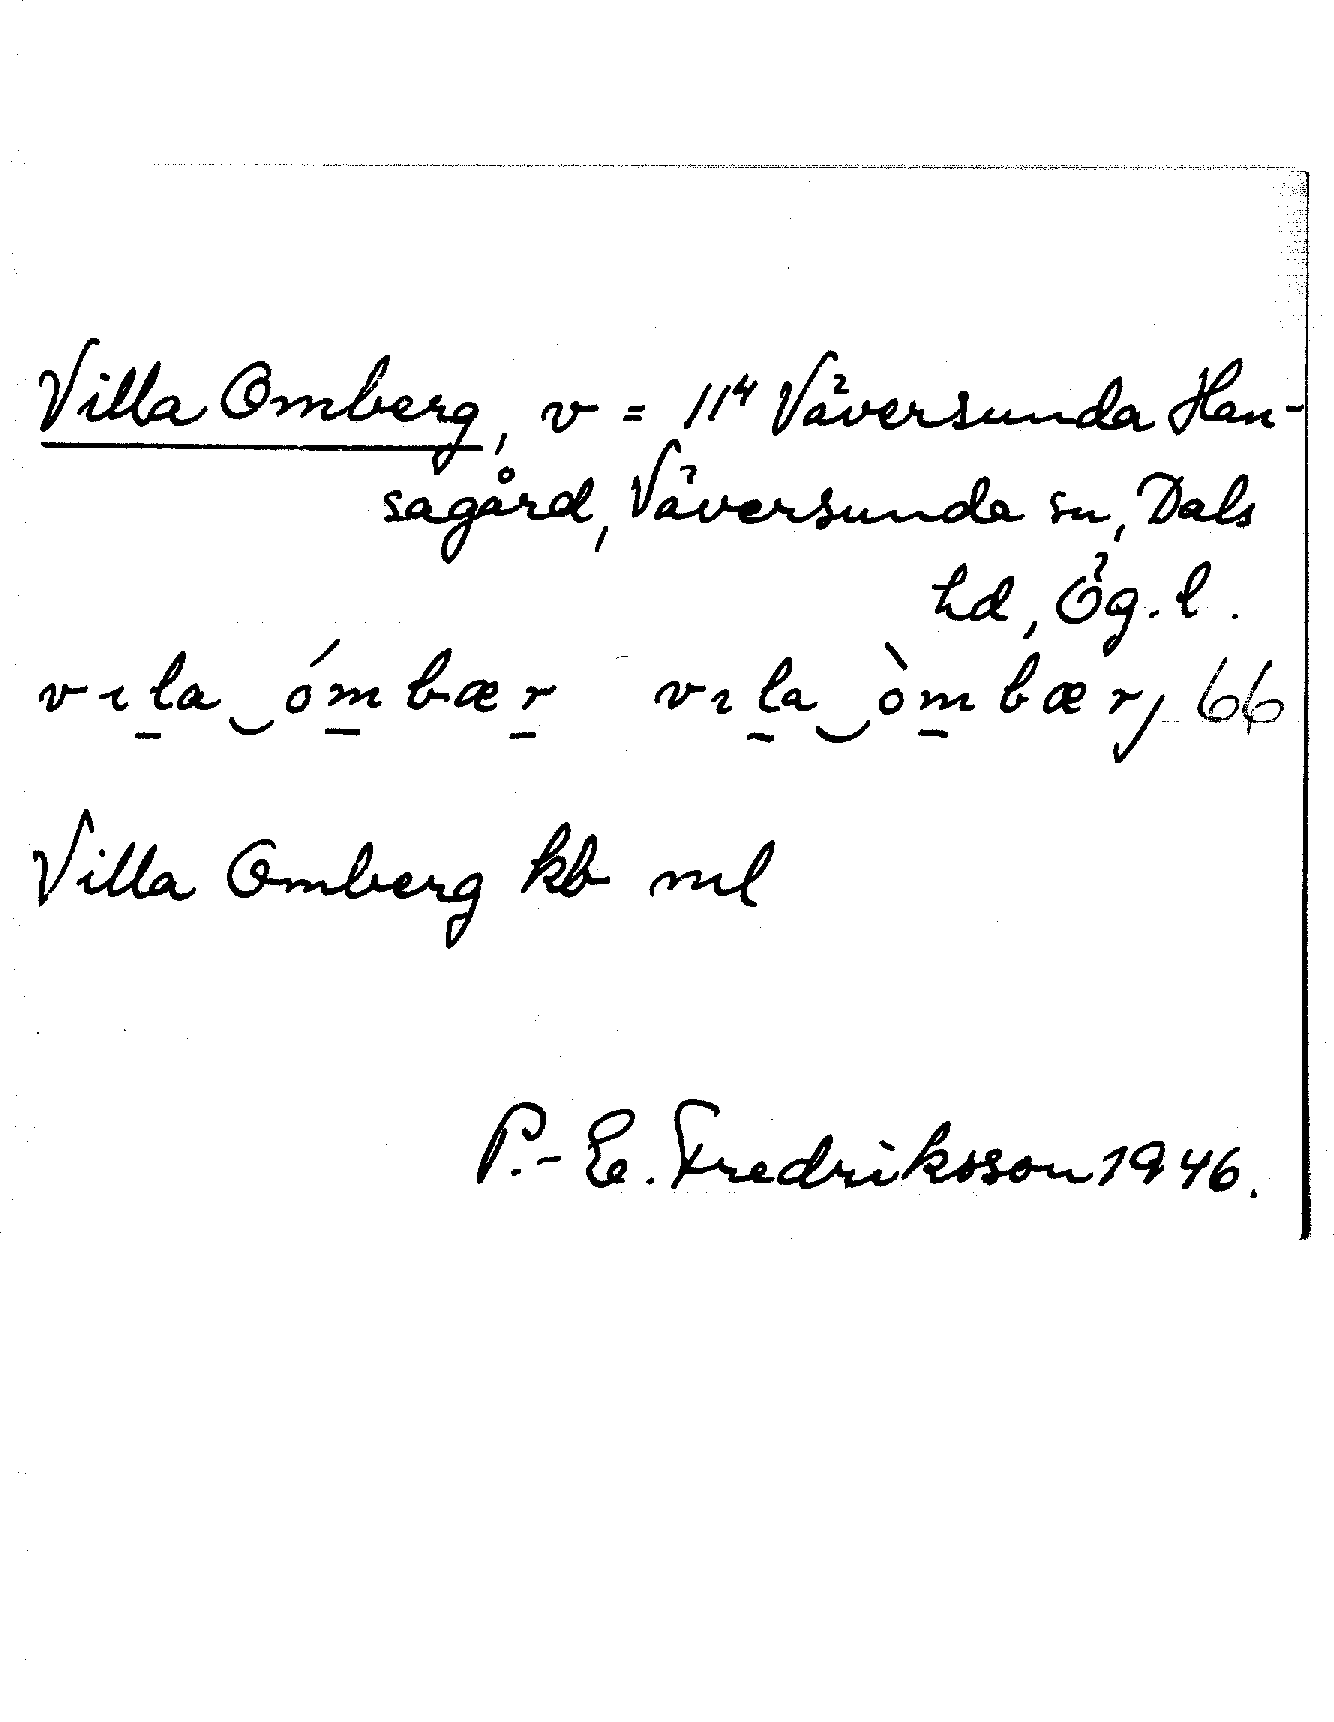 Villa Omberg, v = 11⁴ Väversunda Han-
sagård, Väversunda sn, Dals
hd, Ög. l.
vıla‿ómbær vıla‿òmbærj 66
Villa Omberg kb ml
P.-E. Fredriksson 1946.